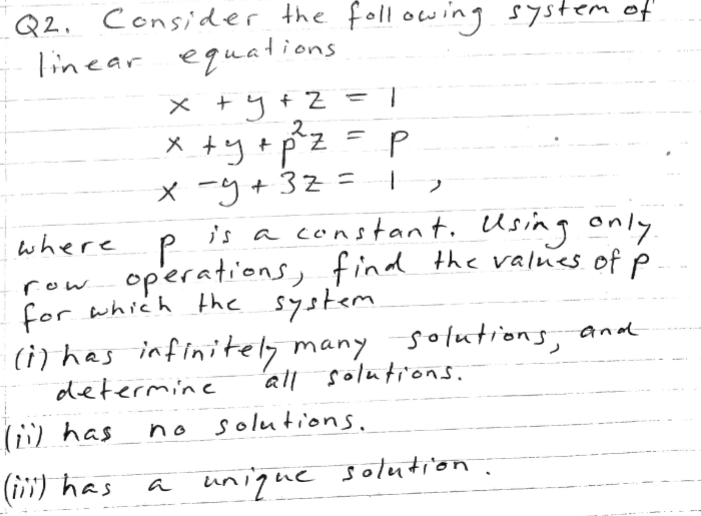 Q2. Consider the following system of
linear equations
x + y + z = 1
x + y + p²z = p
x - y + 3z = 1 ,
where p is a constant. Using only
row operations, find the values of p
for which the system
(i) has infinitely many solutions, and
determine all solutions.
(ii) has no solutions.
(iii) has a unique solution.